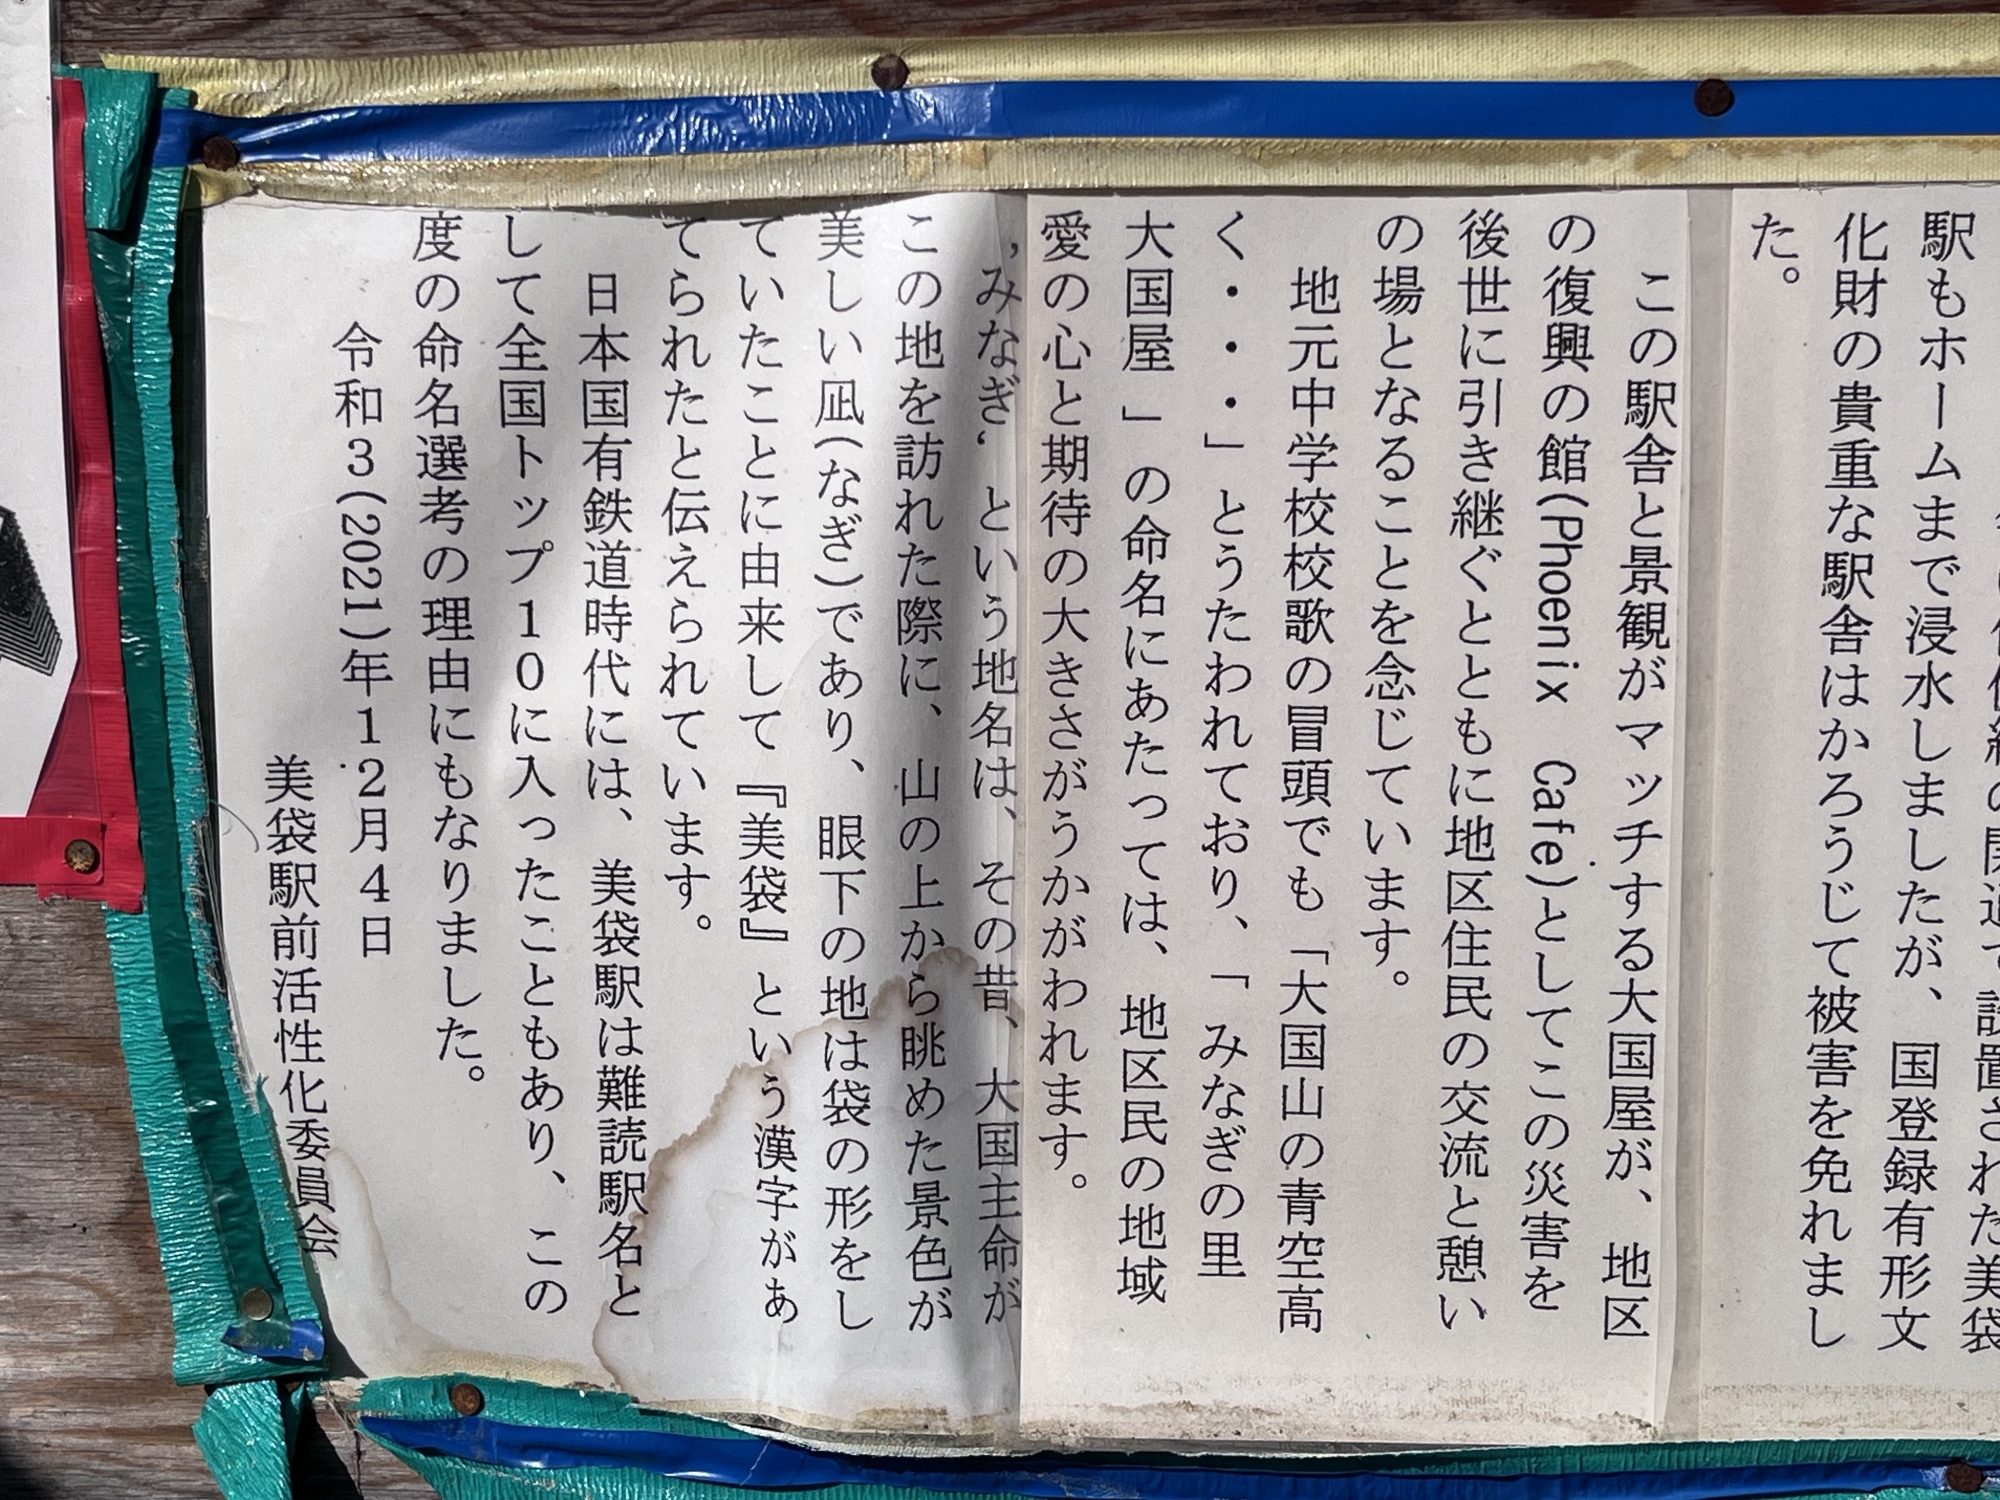 開通で設置された美袋
駅もホームまで浸水しましたが、国登録有形文
化財の貴重な駅舎はかろうじて被害を免れまし
た。
この駅舎と景観がマッチする大国屋が、地区
の復興の館(Phoenix Cafe)としてこの災害を
後世に引き継ぐとともに地区住民の交流と憩い
の場となることを念じています。
地元中学校校歌の冒頭でも「大国山の青空高
く・・・」とうたわれており、「みなぎの里
大国屋」の命名にあたっては、地区民の地域
愛の心と期待の大きさがうかがわれます。
‚みなぎ‘という地名は、その昔、大国主命が
この地を訪れた際に、山の上から眺めた景色が
美しい凪(なぎ)であり、眼下の地は袋の形をし
ていたことに由来して『美袋』という漢字があ
てられたと伝えられています。
日本国有鉄道時代には、美袋駅は難読駅名と
して全国トップ10に入ったこともあり、この
度の命名選考の理由にもなりました。
令和3(2021)年12月4日
美袋駅前活性化委員会